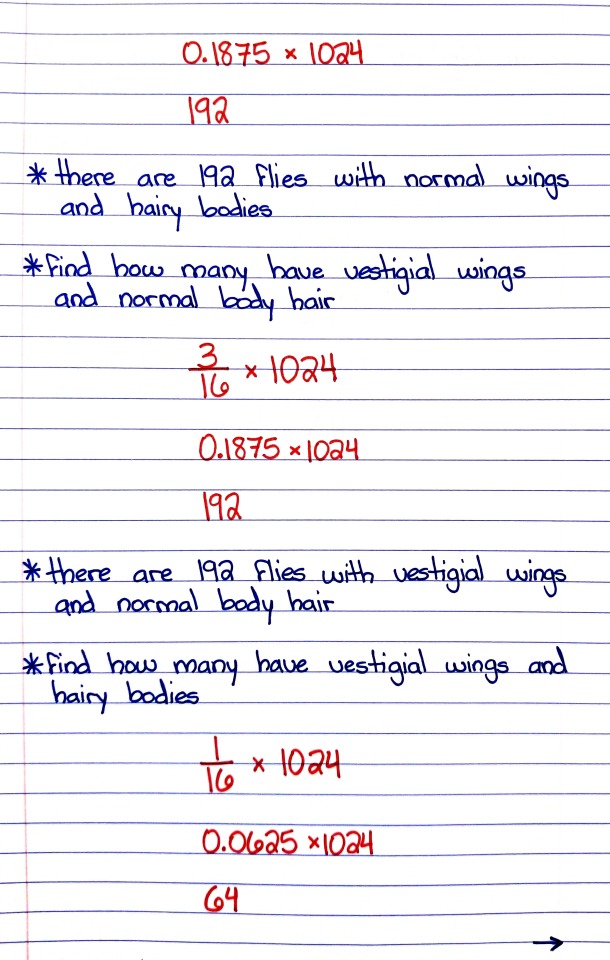 0.1875 × 1024
192
* there are 192 flies with normal wings
and hairy bodies
* find how many have vestigial wings
and normal body hair
3/16 × 1024
0.1875 × 1024
192
* there are 192 flies with vestigial wings
and normal body hair
* find how many have vestigial wings and
hairy bodies
1/16 × 1024
0.0625 × 1024
64
→